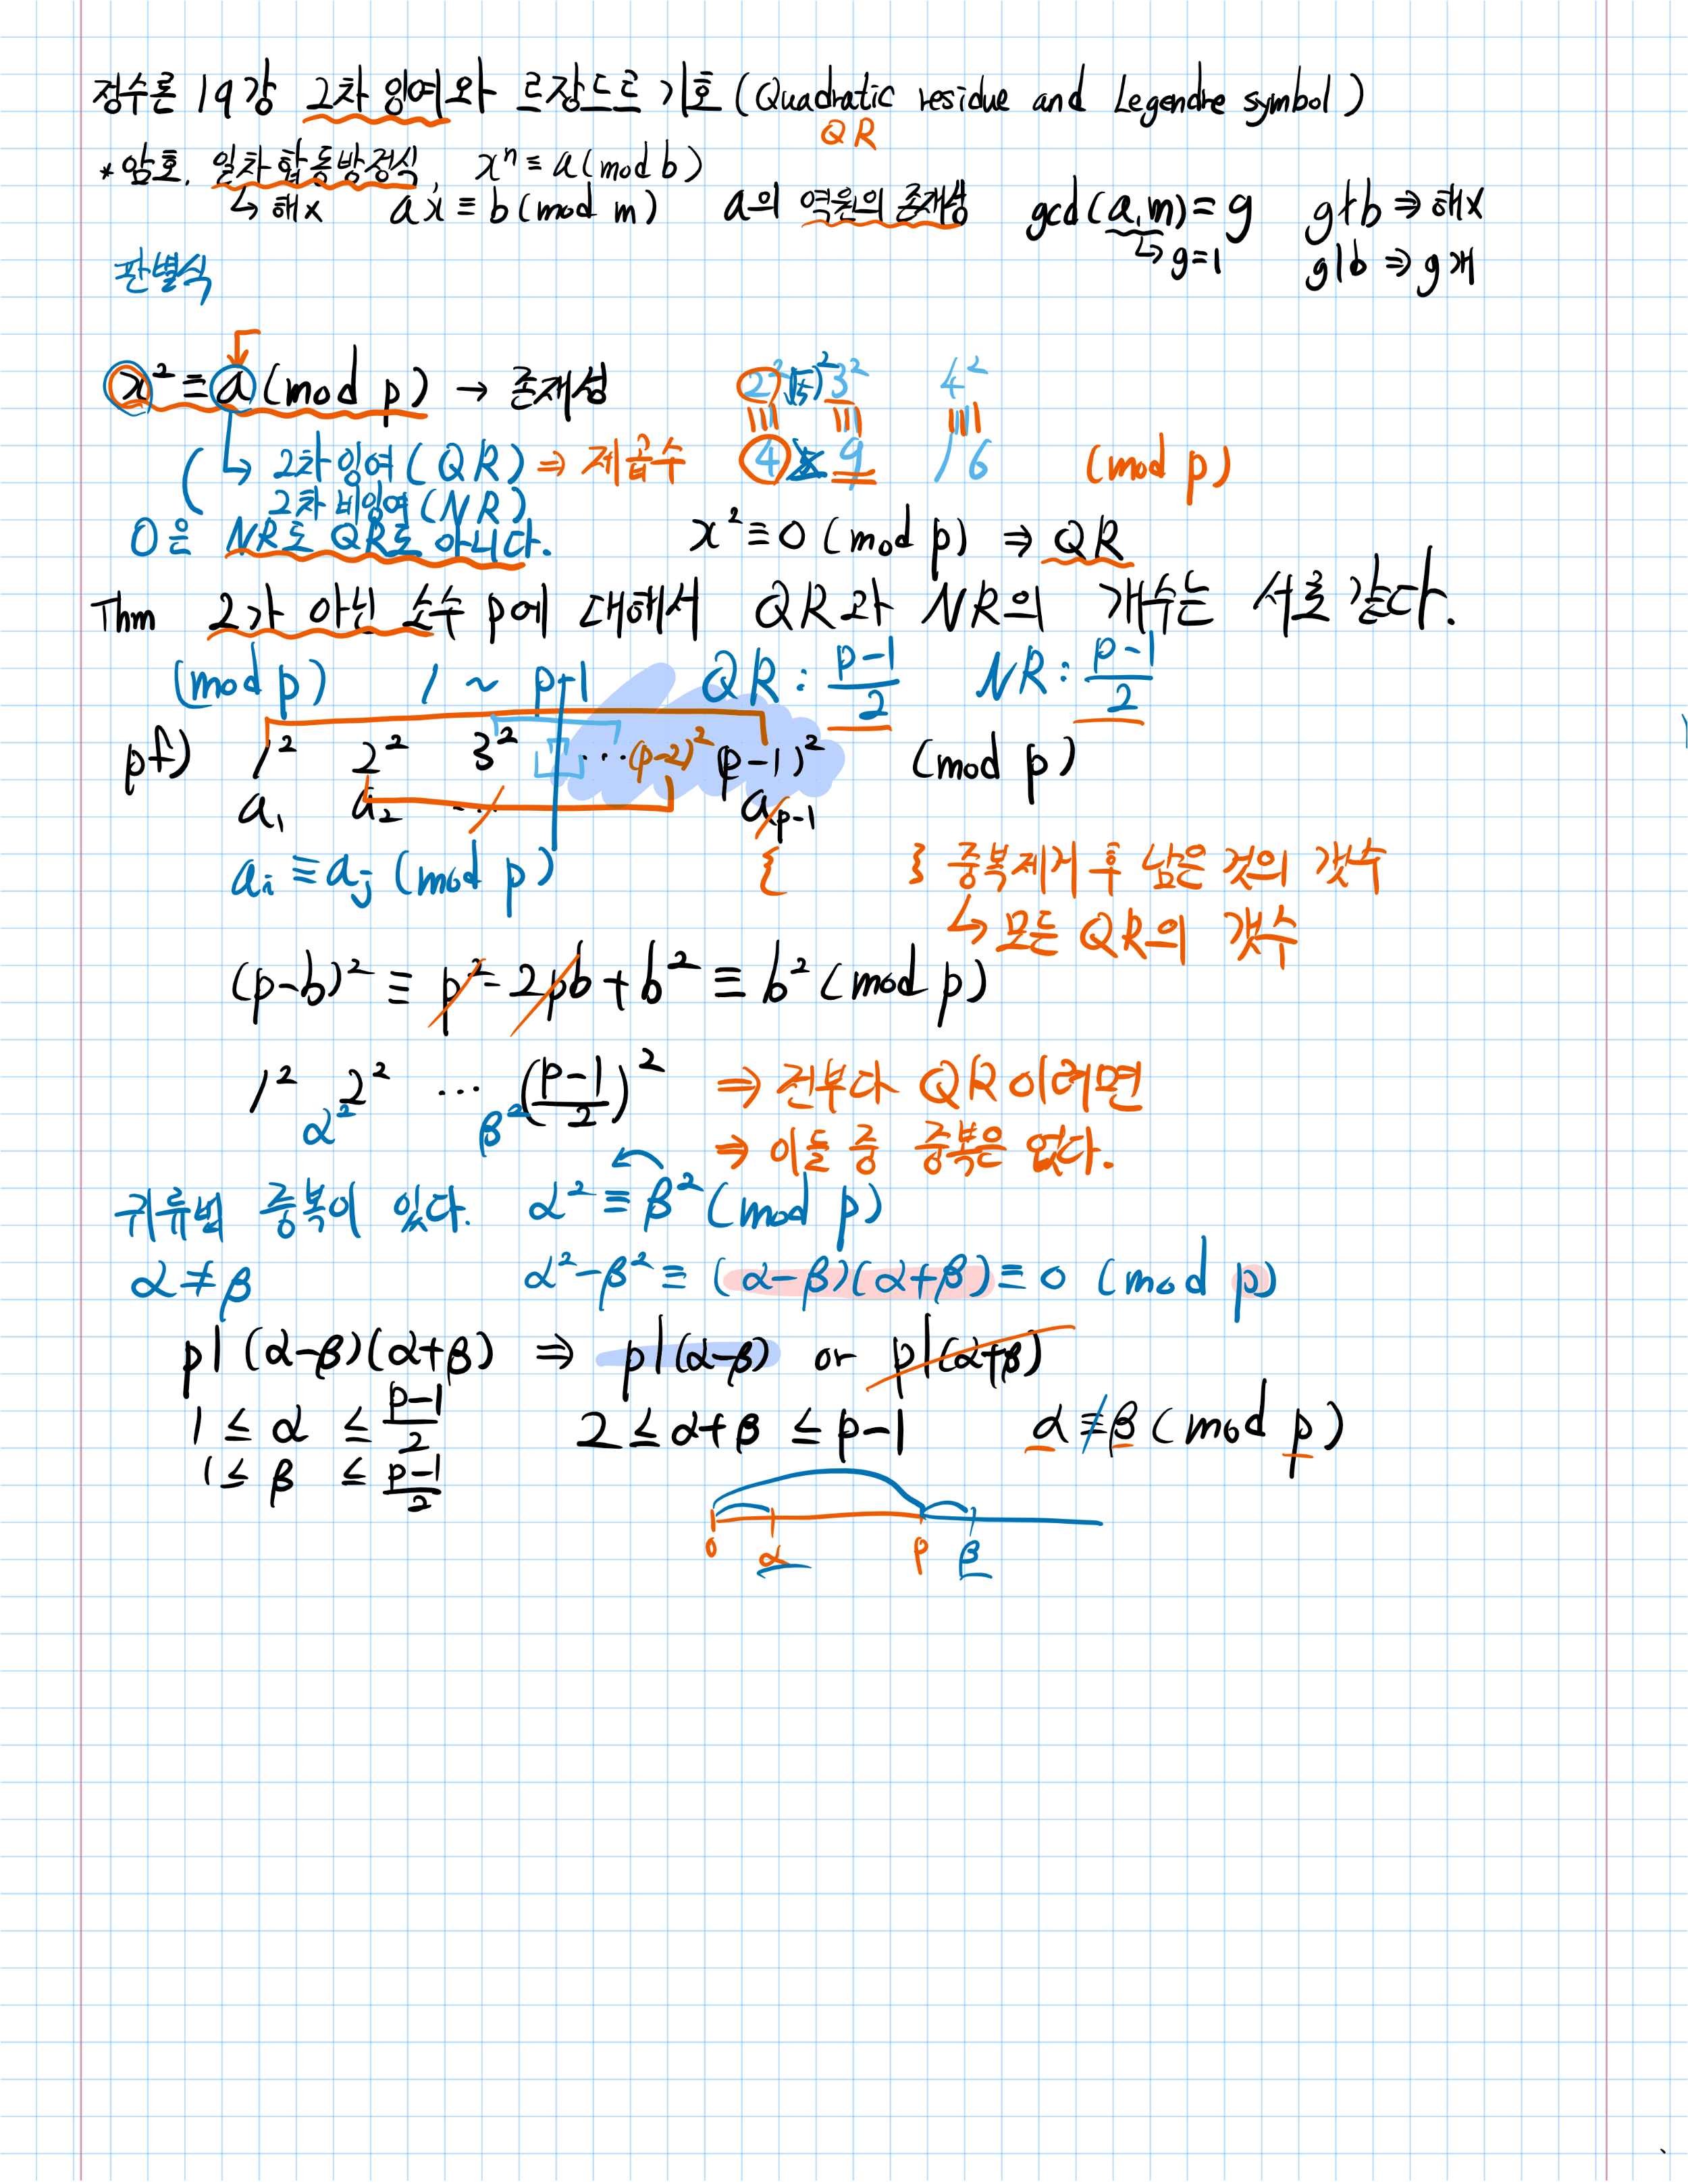 정수론 19강 2차 잉여와 르장드르 기호 (Quadratic residue and Legendre symbol)
QR
*암호. 일차 합동방정식, xⁿ ≡ a (mod b)
↳ 해x ax ≡ b (mod m) a의 역원의 존재성 gcd(a, m) = g g∤b ⇒ 해x
↳ g=1 g|b ⇒ g개
판별식
x² ≡ a (mod p) → 존재성 2² (√5)² 3² 4²
↳ 2차잉여 (QR) ⇒ 제곱수 4 5 9 16 (mod p)
2차 비잉여 (NR)
0은 NR도 QR도 아니다. x² ≡ 0 (mod p) ⇒ QR
Thm 2가 아닌 소수 p에 대해서 QR과 NR의 개수는 서로 같다.
(mod p) 1 ~ p-1 QR : (p-1)/2 NR : (p-1)/2
pf) 1² 2² 3² … (p-2)² (p-1)² (mod p)
a₁ a₂ … a_{p-1}
a_i ≡ a_j (mod p) { } 중복제거 후 남은 것의 갯수
↳ 모든 QR의 갯수
(p-b)² ≡ p² - 2pb + b² ≡ b² (mod p)
1² 2² … ((p-1)/2)² ⇒ 전부다 QR이려면
α² β² ⇒ 이들 중 중복은 없다.
귀류법 중복이 있다. α² ≡ β² (mod p)
α ≠ β α²-β² ≡ (α-β)(α+β) ≡ 0 (mod p)
p | (α-β)(α+β) ⇒ p|(α-β) or p|(α+β)
1 ≤ α ≤ (p-1)/2 2 ≤ α+β ≤ p-1 α ≢ β (mod p)
1 ≤ β ≤ (p-1)/2
0 α p β